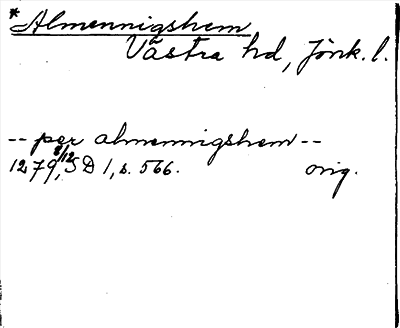 *Almennigshem
Västra hd, Jönk. l.
-- per almennigshem --
1279 8/12, SD 1, s. 566. orig.